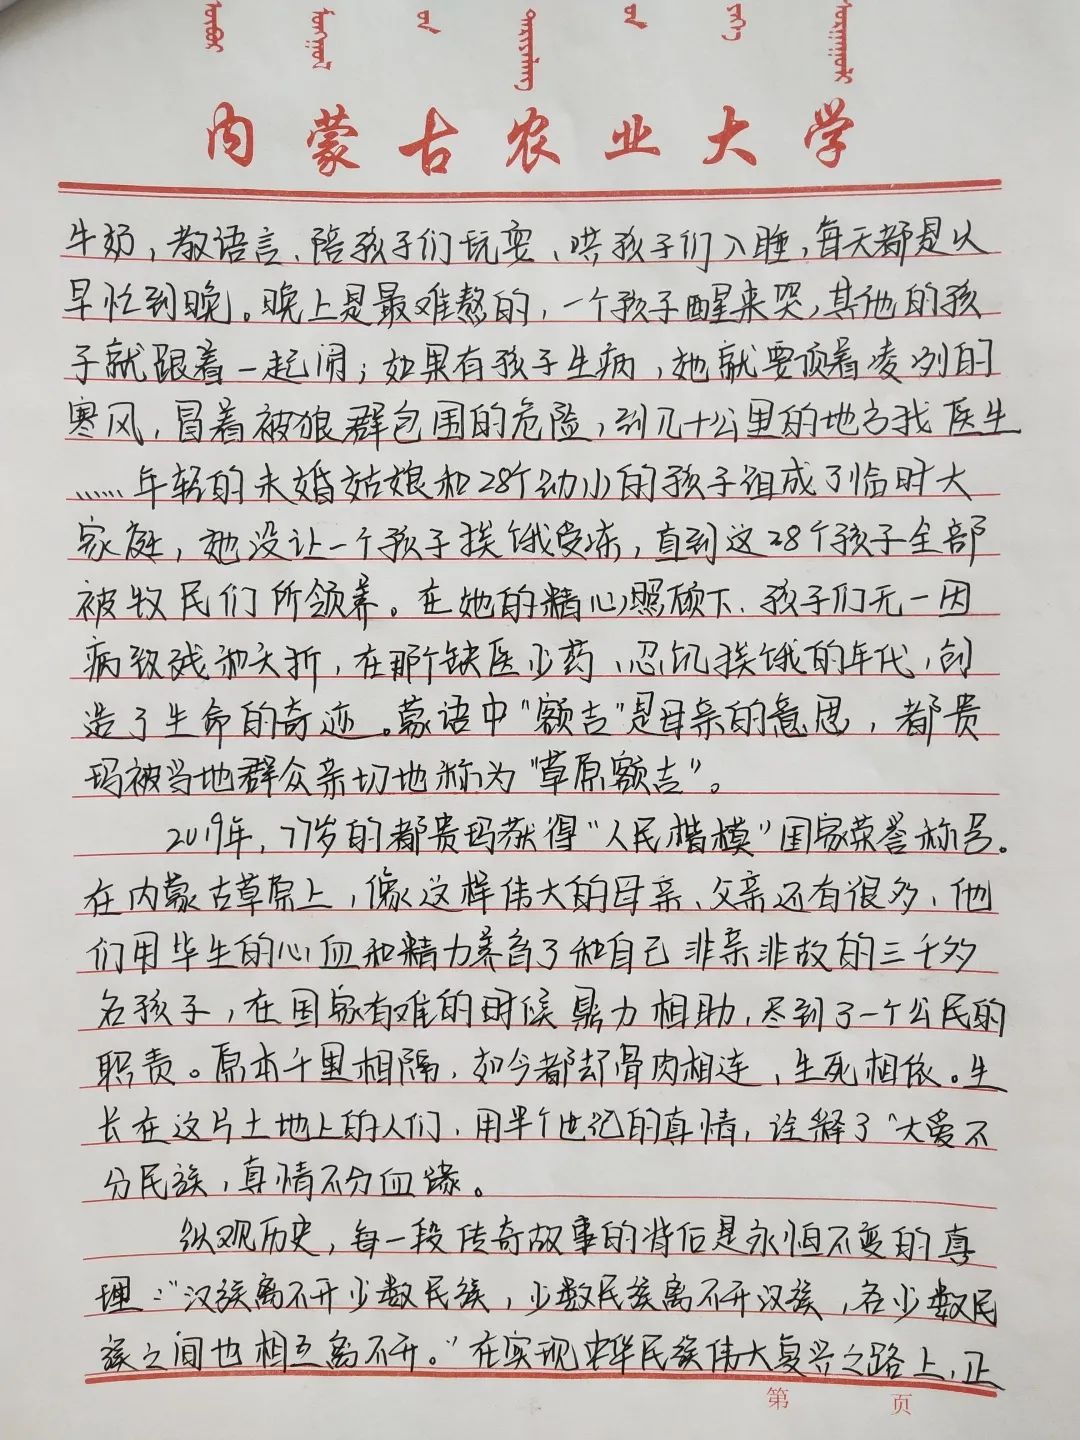 内蒙古农业大学
牛奶，教语言、陪孩子们玩耍、哄孩子们入睡，每天都是从
早忙到晚。晚上是最难熬的，一个孩子醒来哭，其他的孩
子就跟着一起闹；如果有孩子生病，她就要顶着凌冽的
寒风，冒着被狼群包围的危险，到几十公里的地方找医生
……年轻的未婚姑娘和28个幼小的孩子组成了临时大
家庭，她没让一个孩子挨饿受冻，直到这28个孩子全部
被牧民们所领养。在她的精心照顾下、孩子们无一因
病致残和夭折，在那个缺医少药、忍饥挨饿的年代，创
造了生命的奇迹。蒙语中“额吉”是母亲的意思，都贵
玛被当地群众亲切地称为“草原额吉”。
2019年，77岁的都贵玛获得“人民楷模”国家荣誉称号。
在内蒙古草原上，像这样伟大的母亲、父亲还有很多，他
们用毕生的心血和精力养育了和自己非亲非故的三千多
名孩子，在国家有难的时候鼎力相助，尽到了一个公民的
职责。原本千里相隔，如今都却骨肉相连，生死相依。生
长在这片土地上的人们，用半个世纪的真情，诠释了“大爱不
分民族，真情不分血缘。
纵观历史，每一段传奇故事的背后是永恒不变的真
理：“汉族离不开少数民族，少数民族离不开汉族，各少数民
族之间也相互离不开。”在实现中华民族伟大复兴之路上，正
第 页